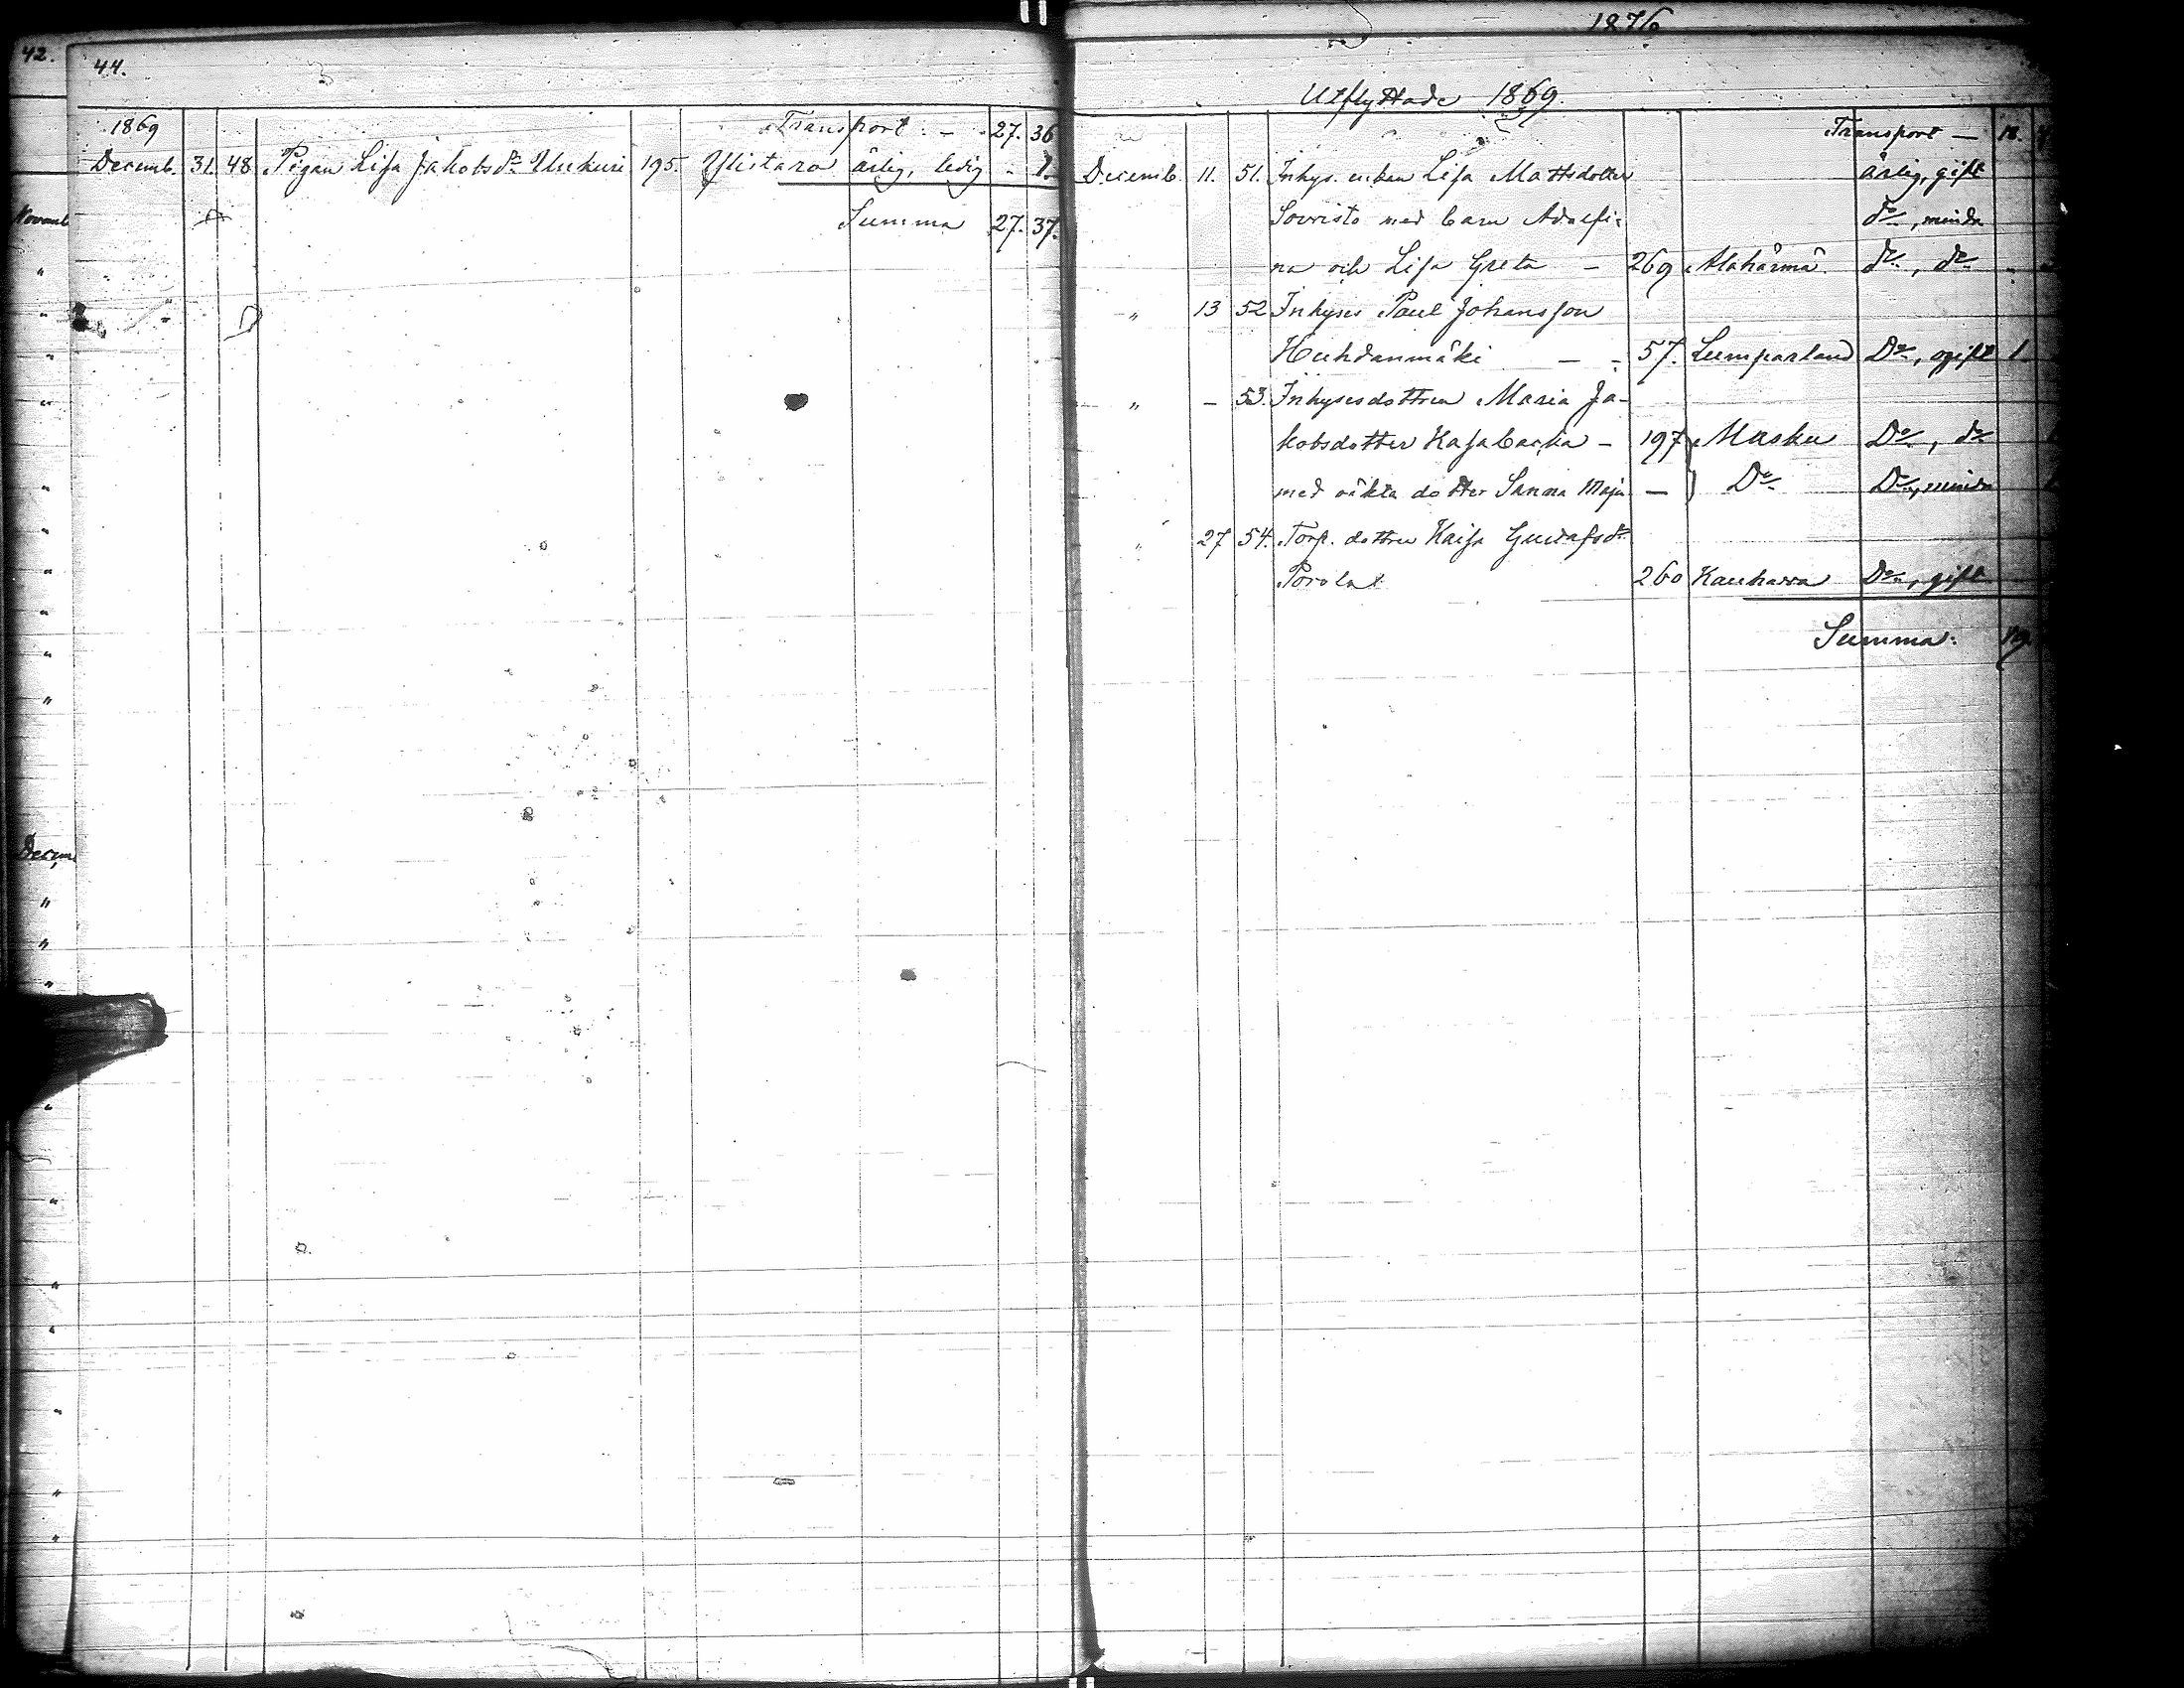 42.
44.
1869 Transport - 27. 36
Decemb. 31. 48 Pigan Lisa Jakobsdr 195. Ylistaro ärlig, ledig - 1.
Summa 27. 37.
Novemb
Decem
1876
Utflyttade 1869.
Transport — 18.
Decemb. 11. 51. Inhys. enkan Lisa Mattsdotter ärlig, gift
Sorvisto med barn Adolfi- do, minder
na och Lisa Greta - 269 Alahärmä do, do
" 13 52 Inhyses Paul Johansson
Huhdanmäki - - 57. Lumparland Do, ogift 1
" - 53. Inhysesdottren Maria Ja-
kobsdotter Hasabacka - 197 Masku Do, do
med oäkta dotter Sanna Maja — Do Do, minder
" 27 54. Torp. dottren Kaisa Gustafsdr
Porola 260 Kauhava Do, gift
Summa: 19.